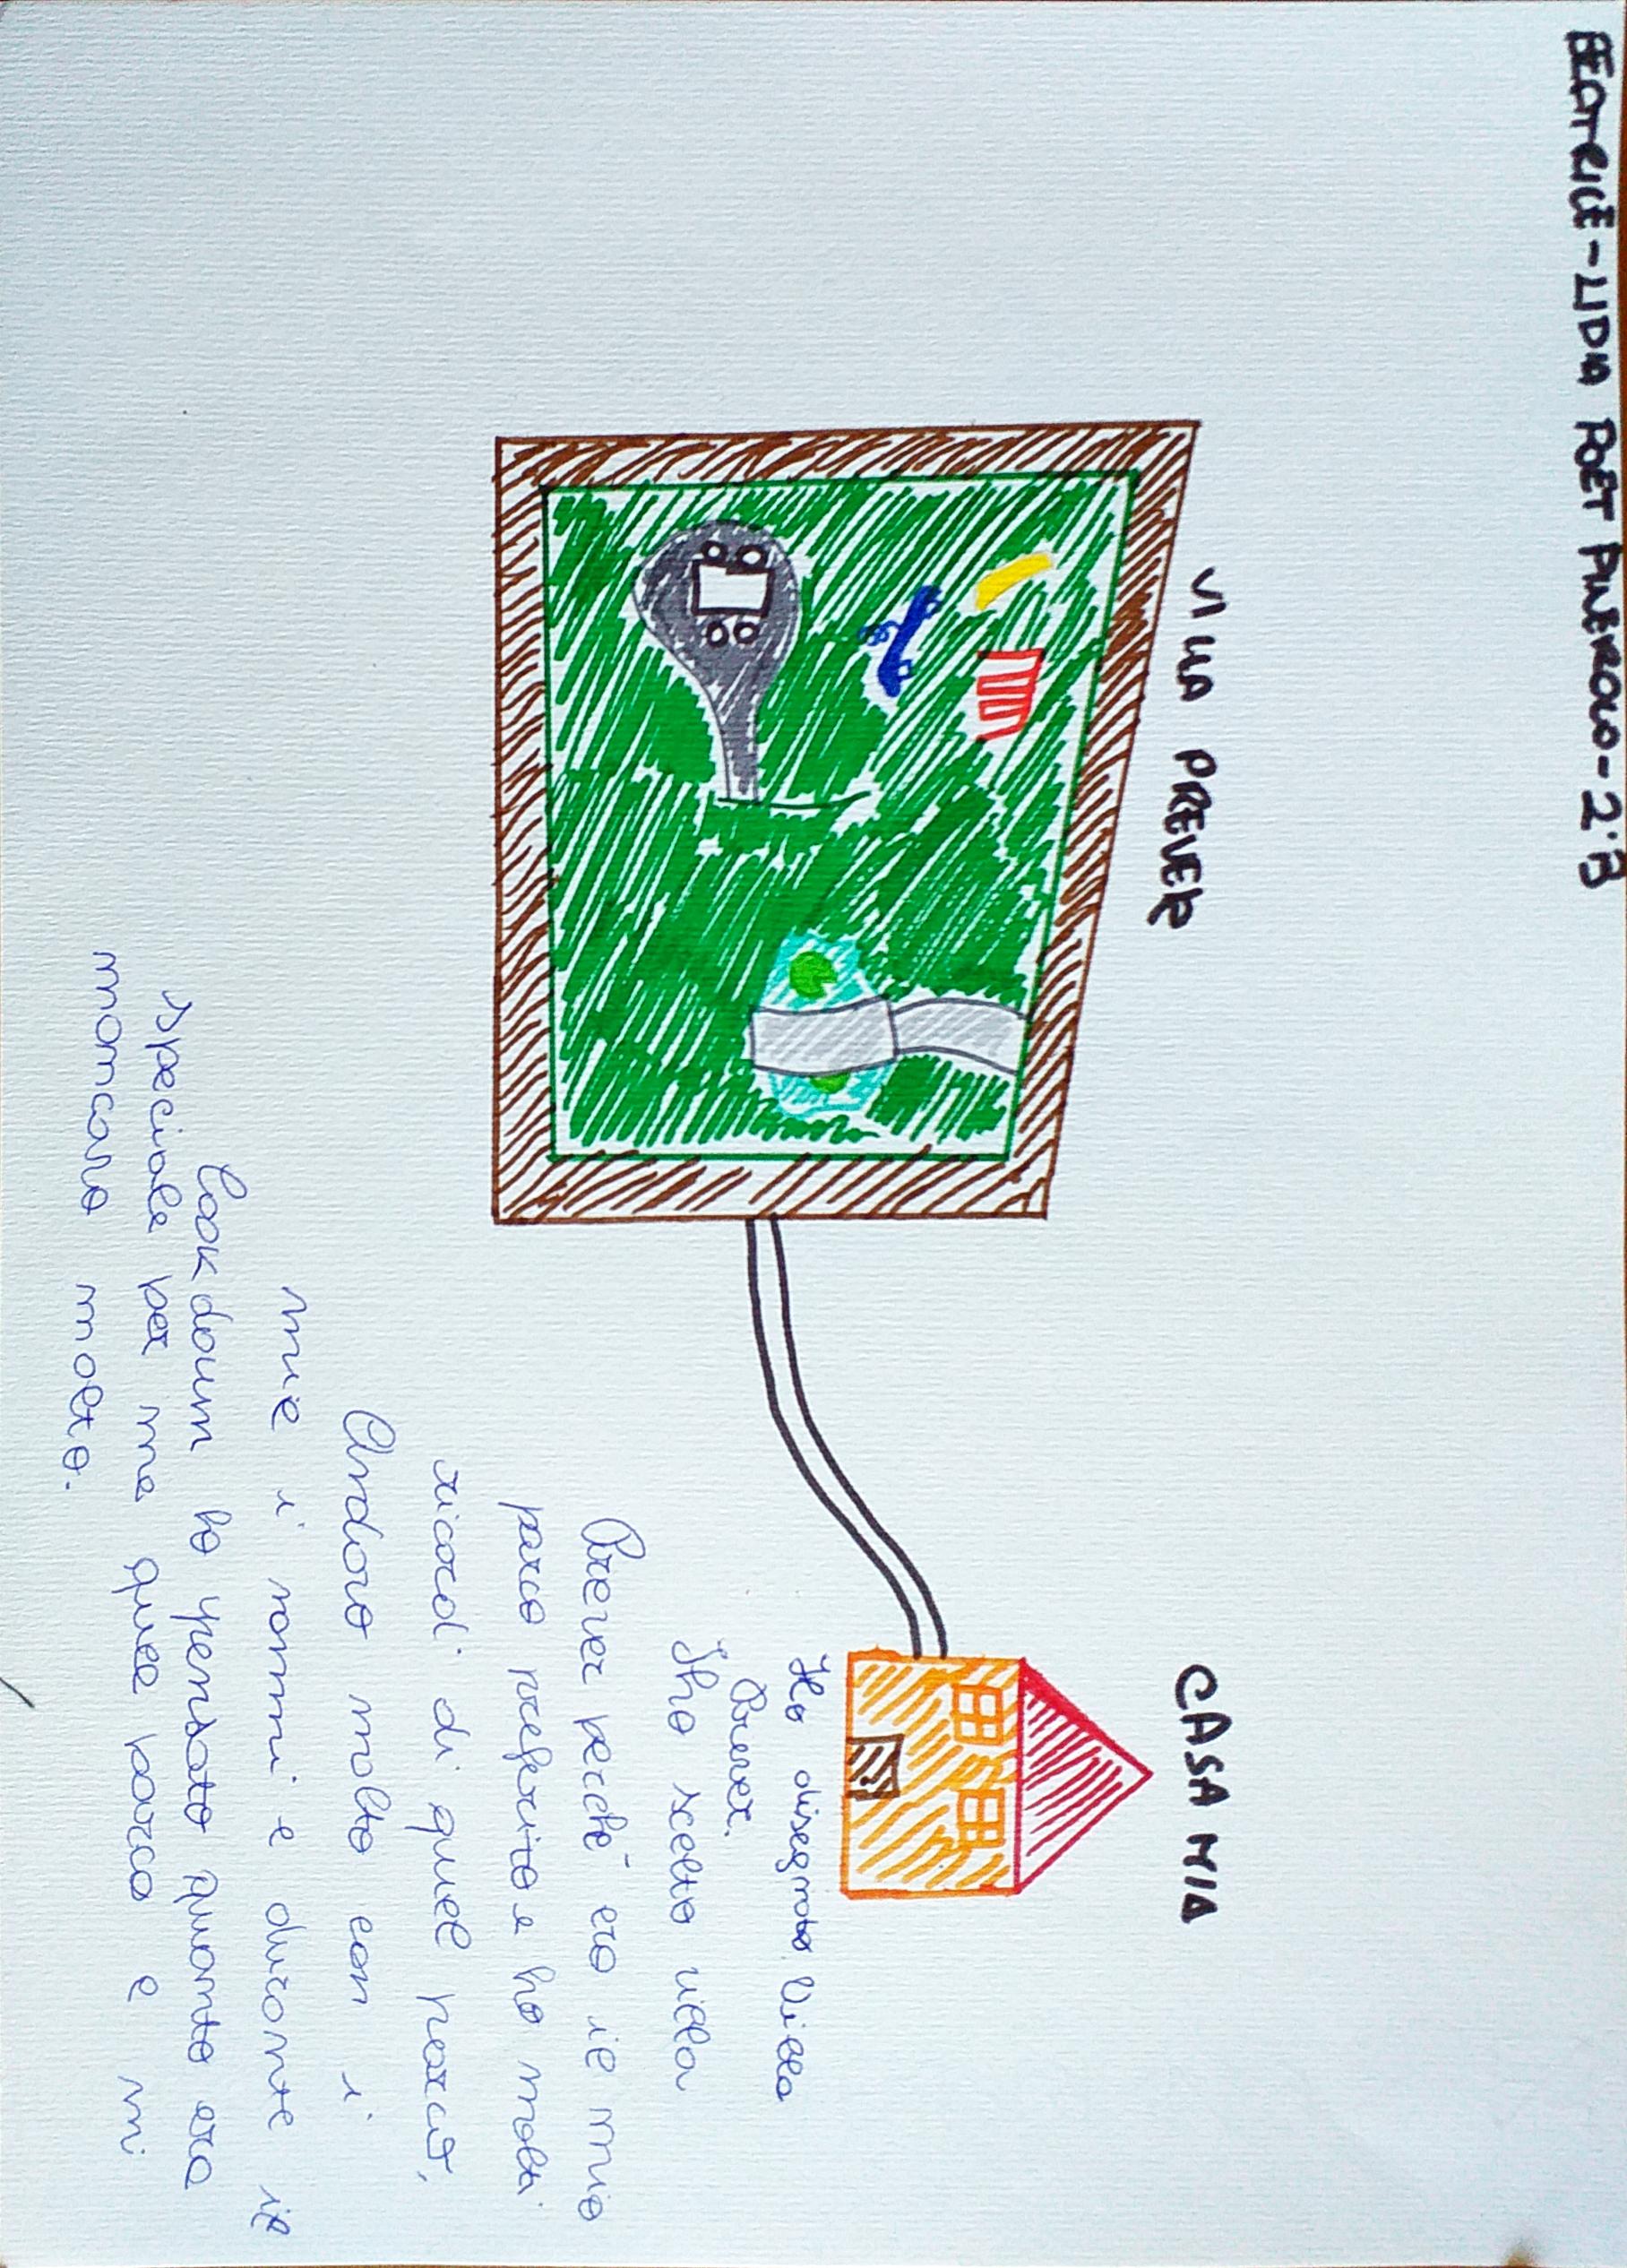 BEATRICE-LIDIA POET PINEROLO-2°B
VILLA PREVER
CASA MIA
Ho disegnato Villa
Prever.
Iho scelto villa
Prever perchè era il mio
parco preferito e ho molti
ricordi di quel parco,
Andavo molto con i
miei nonni e durante il
lockdown ho pensato quanto era
speciale per me quel parco e mi
mancava molto.